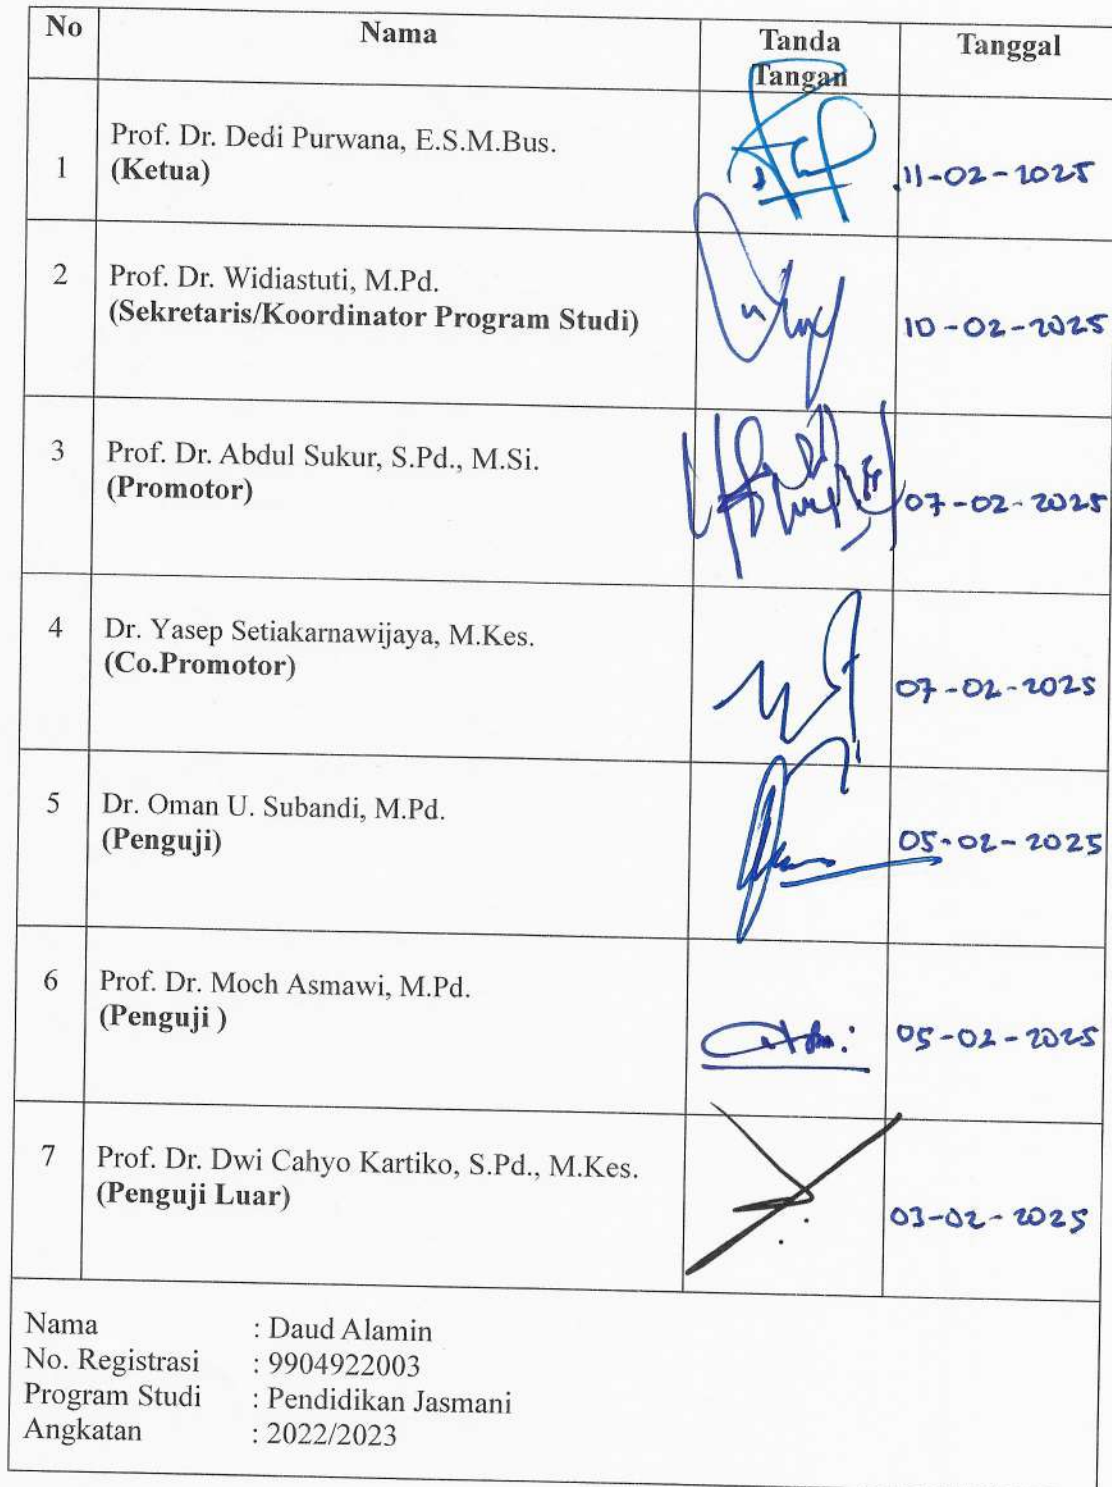 No Nama Tanda Tangan Tanggal
1 Prof. Dr. Dedi Purwana, E.S.M.Bus.
(Ketua)
11-02-2025
2 Prof. Dr. Widiastuti, M.Pd.
(Sekretaris/Koordinator Program Studi)
10-02-2025
3 Prof. Dr. Abdul Sukur, S.Pd., M.Si.
(Promotor)
07-02-2025
4 Dr. Yasep Setiakarnawijaya, M.Kes.
(Co.Promotor)
07-02-2025
5 Dr. Oman U. Subandi, M.Pd.
(Penguji)
05-02-2025
6 Prof. Dr. Moch Asmawi, M.Pd.
(Penguji )
05-02-2025
7 Prof. Dr. Dwi Cahyo Kartiko, S.Pd., M.Kes.
(Penguji Luar)
03-02-2025
Nama : Daud Alamin
No. Registrasi : 9904922003
Program Studi : Pendidikan Jasmani
Angkatan : 2022/2023